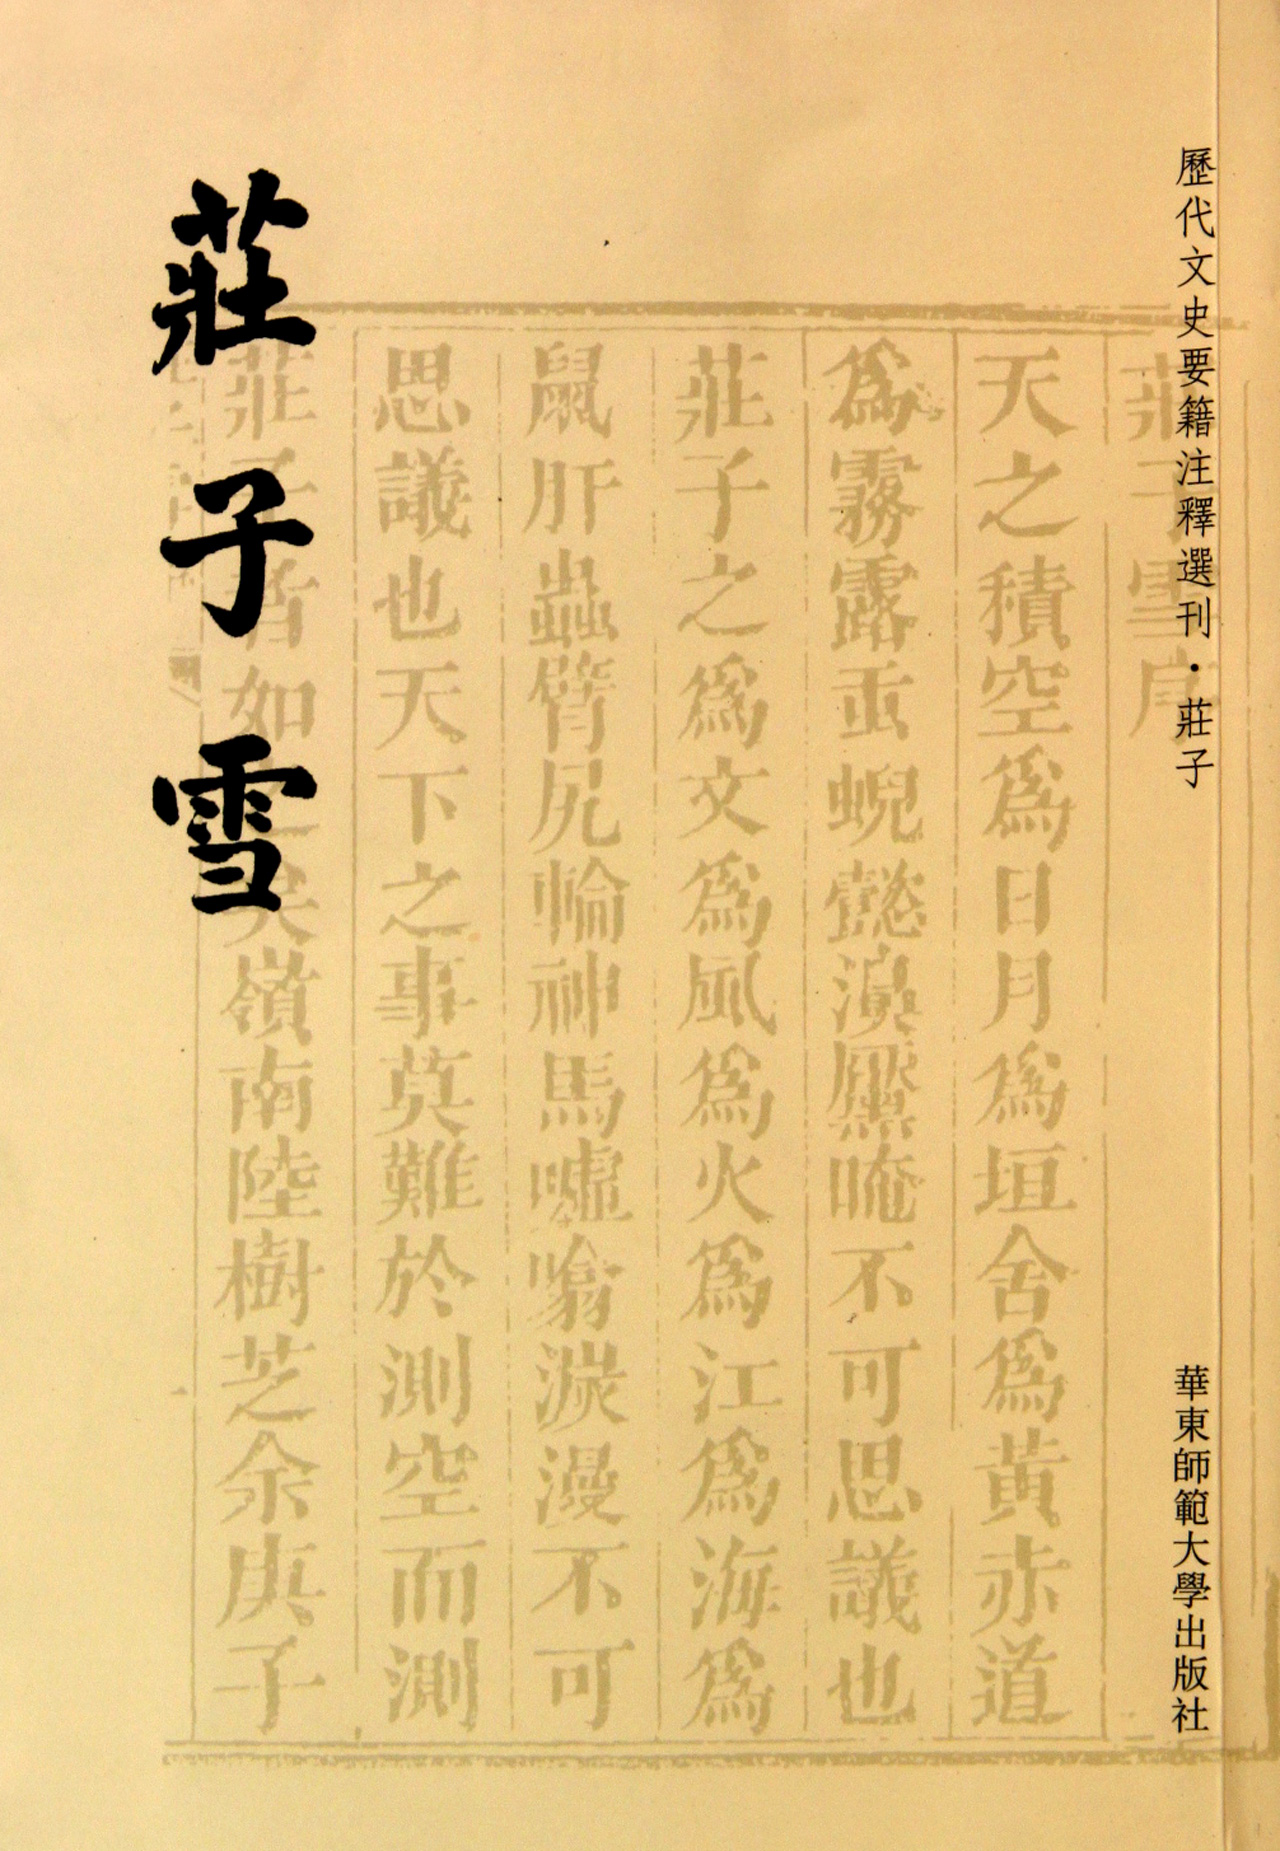 歷代文史要籍注釋選刊·莊子
華東師範大學出版社
莊子雪
莊子雪序
天之積空為日月為垣舍為黃赤道
為霧露䖝蜺懿澒黶唵不可思議也
莊子之為文為風為火為江為海為
鼠肝蟲臂尻輪神馬噓噏漫不可
思議也天下之事莫難於測空而測
莊子者如
嶺南陸樹芝余庚子